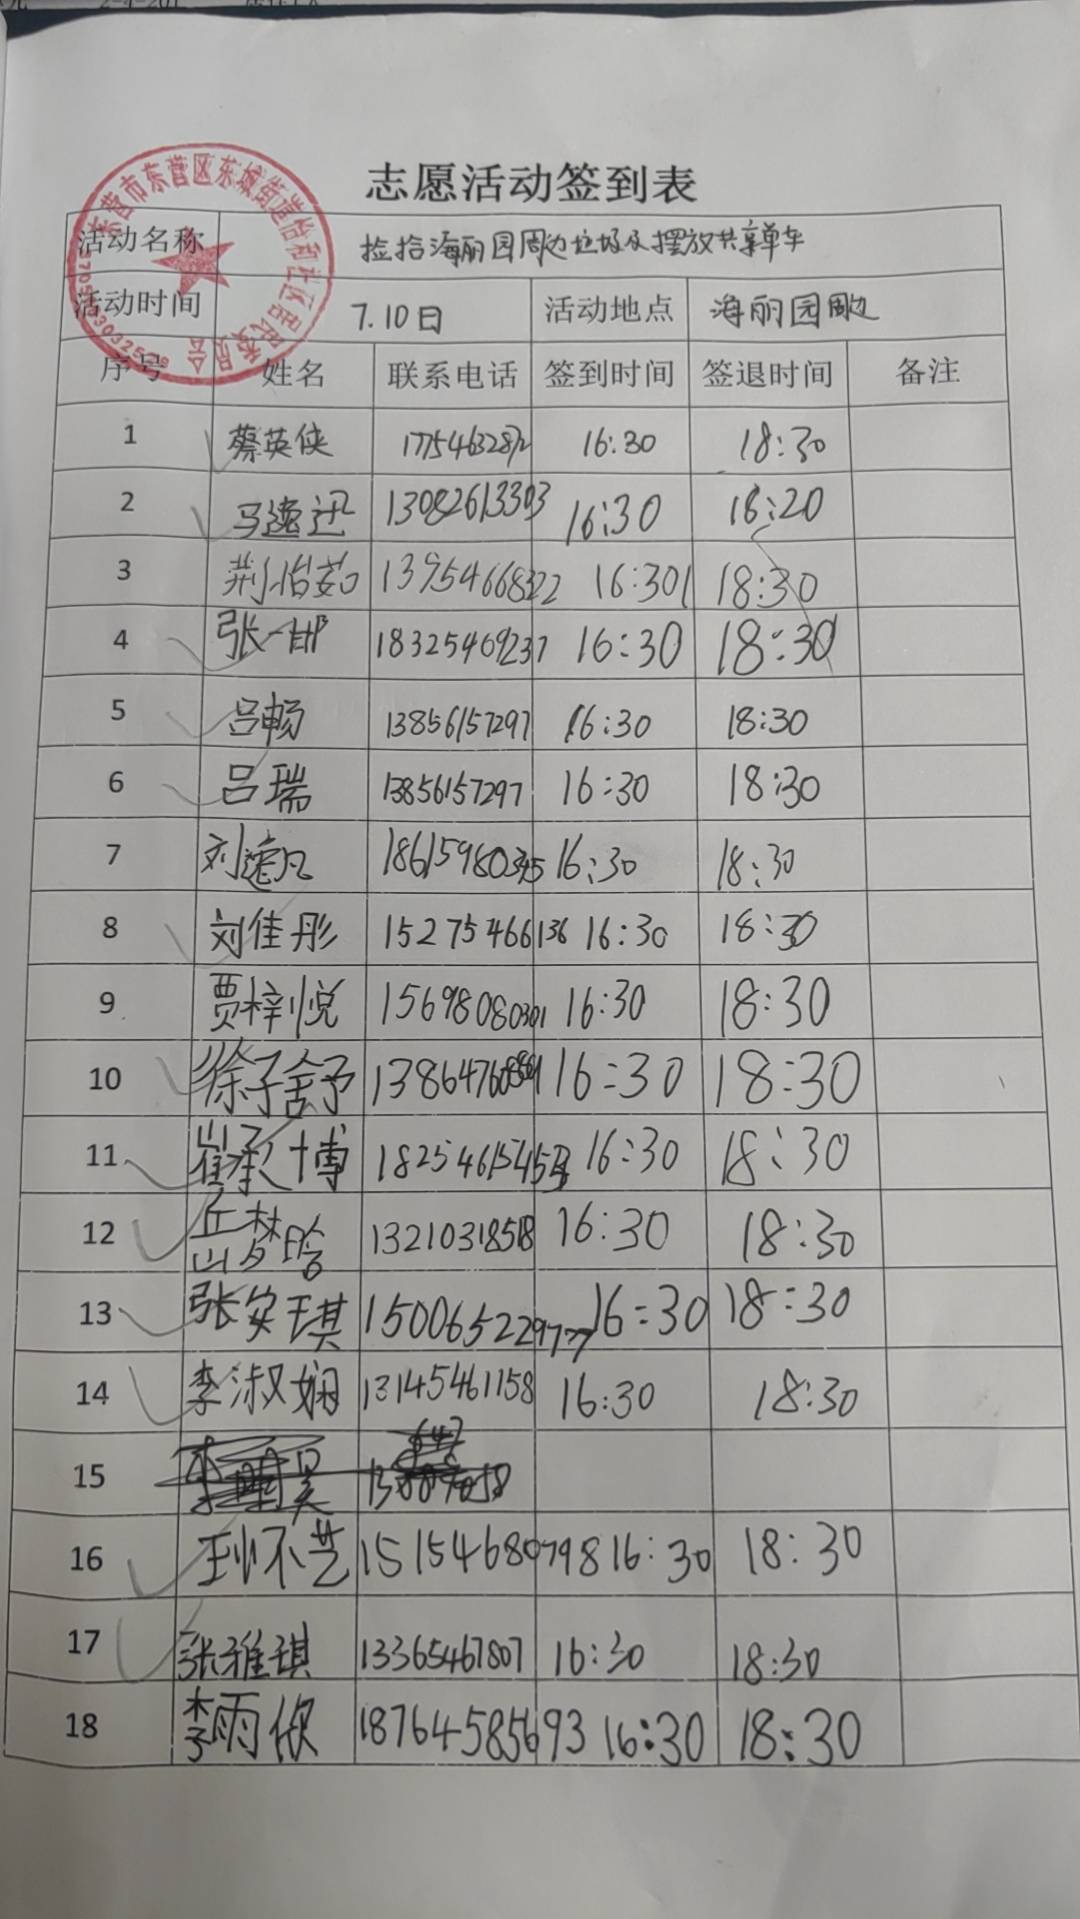 志愿活动签到表
活动名称 捡拾海丽园周边垃圾及摆放共享单车
活动时间 7.10日 活动地点 海丽园周边
序号 姓名 联系电话 签到时间 签退时间 备注
1 蔡英侠 17754632872 16:30 18:30
2 马逸迅 13082613303 16:30 18:20
3 荆怡茹 13954668322 16:30 18:30
4 张一邯 18325469237 16:30 18:30
5 吕畅 13856157297 16:30 18:30
6 吕瑞 13856157297 16:30 18:30
7 刘逸凡 18615980345 16:30 18:30
8 刘佳彤 15275466136 16:30 18:30
9 贾梓悦 15698080301 16:30 18:30
10 徐子舍予 16:30 18:30
11 崔承博 16:30 18:30
12 岳梦晗 13210318518 16:30 18:30
13 张安琪 16:30 18:30
14 李淑娴 13145461158 16:30 18:30
15
16 15154680798 16:30 18:30
17 张雅琪 13365467807 16:30 18:30
18 李雨欣 18764585693 16:30 18:30
东营市东营区东城街道怡和社区居民委员会